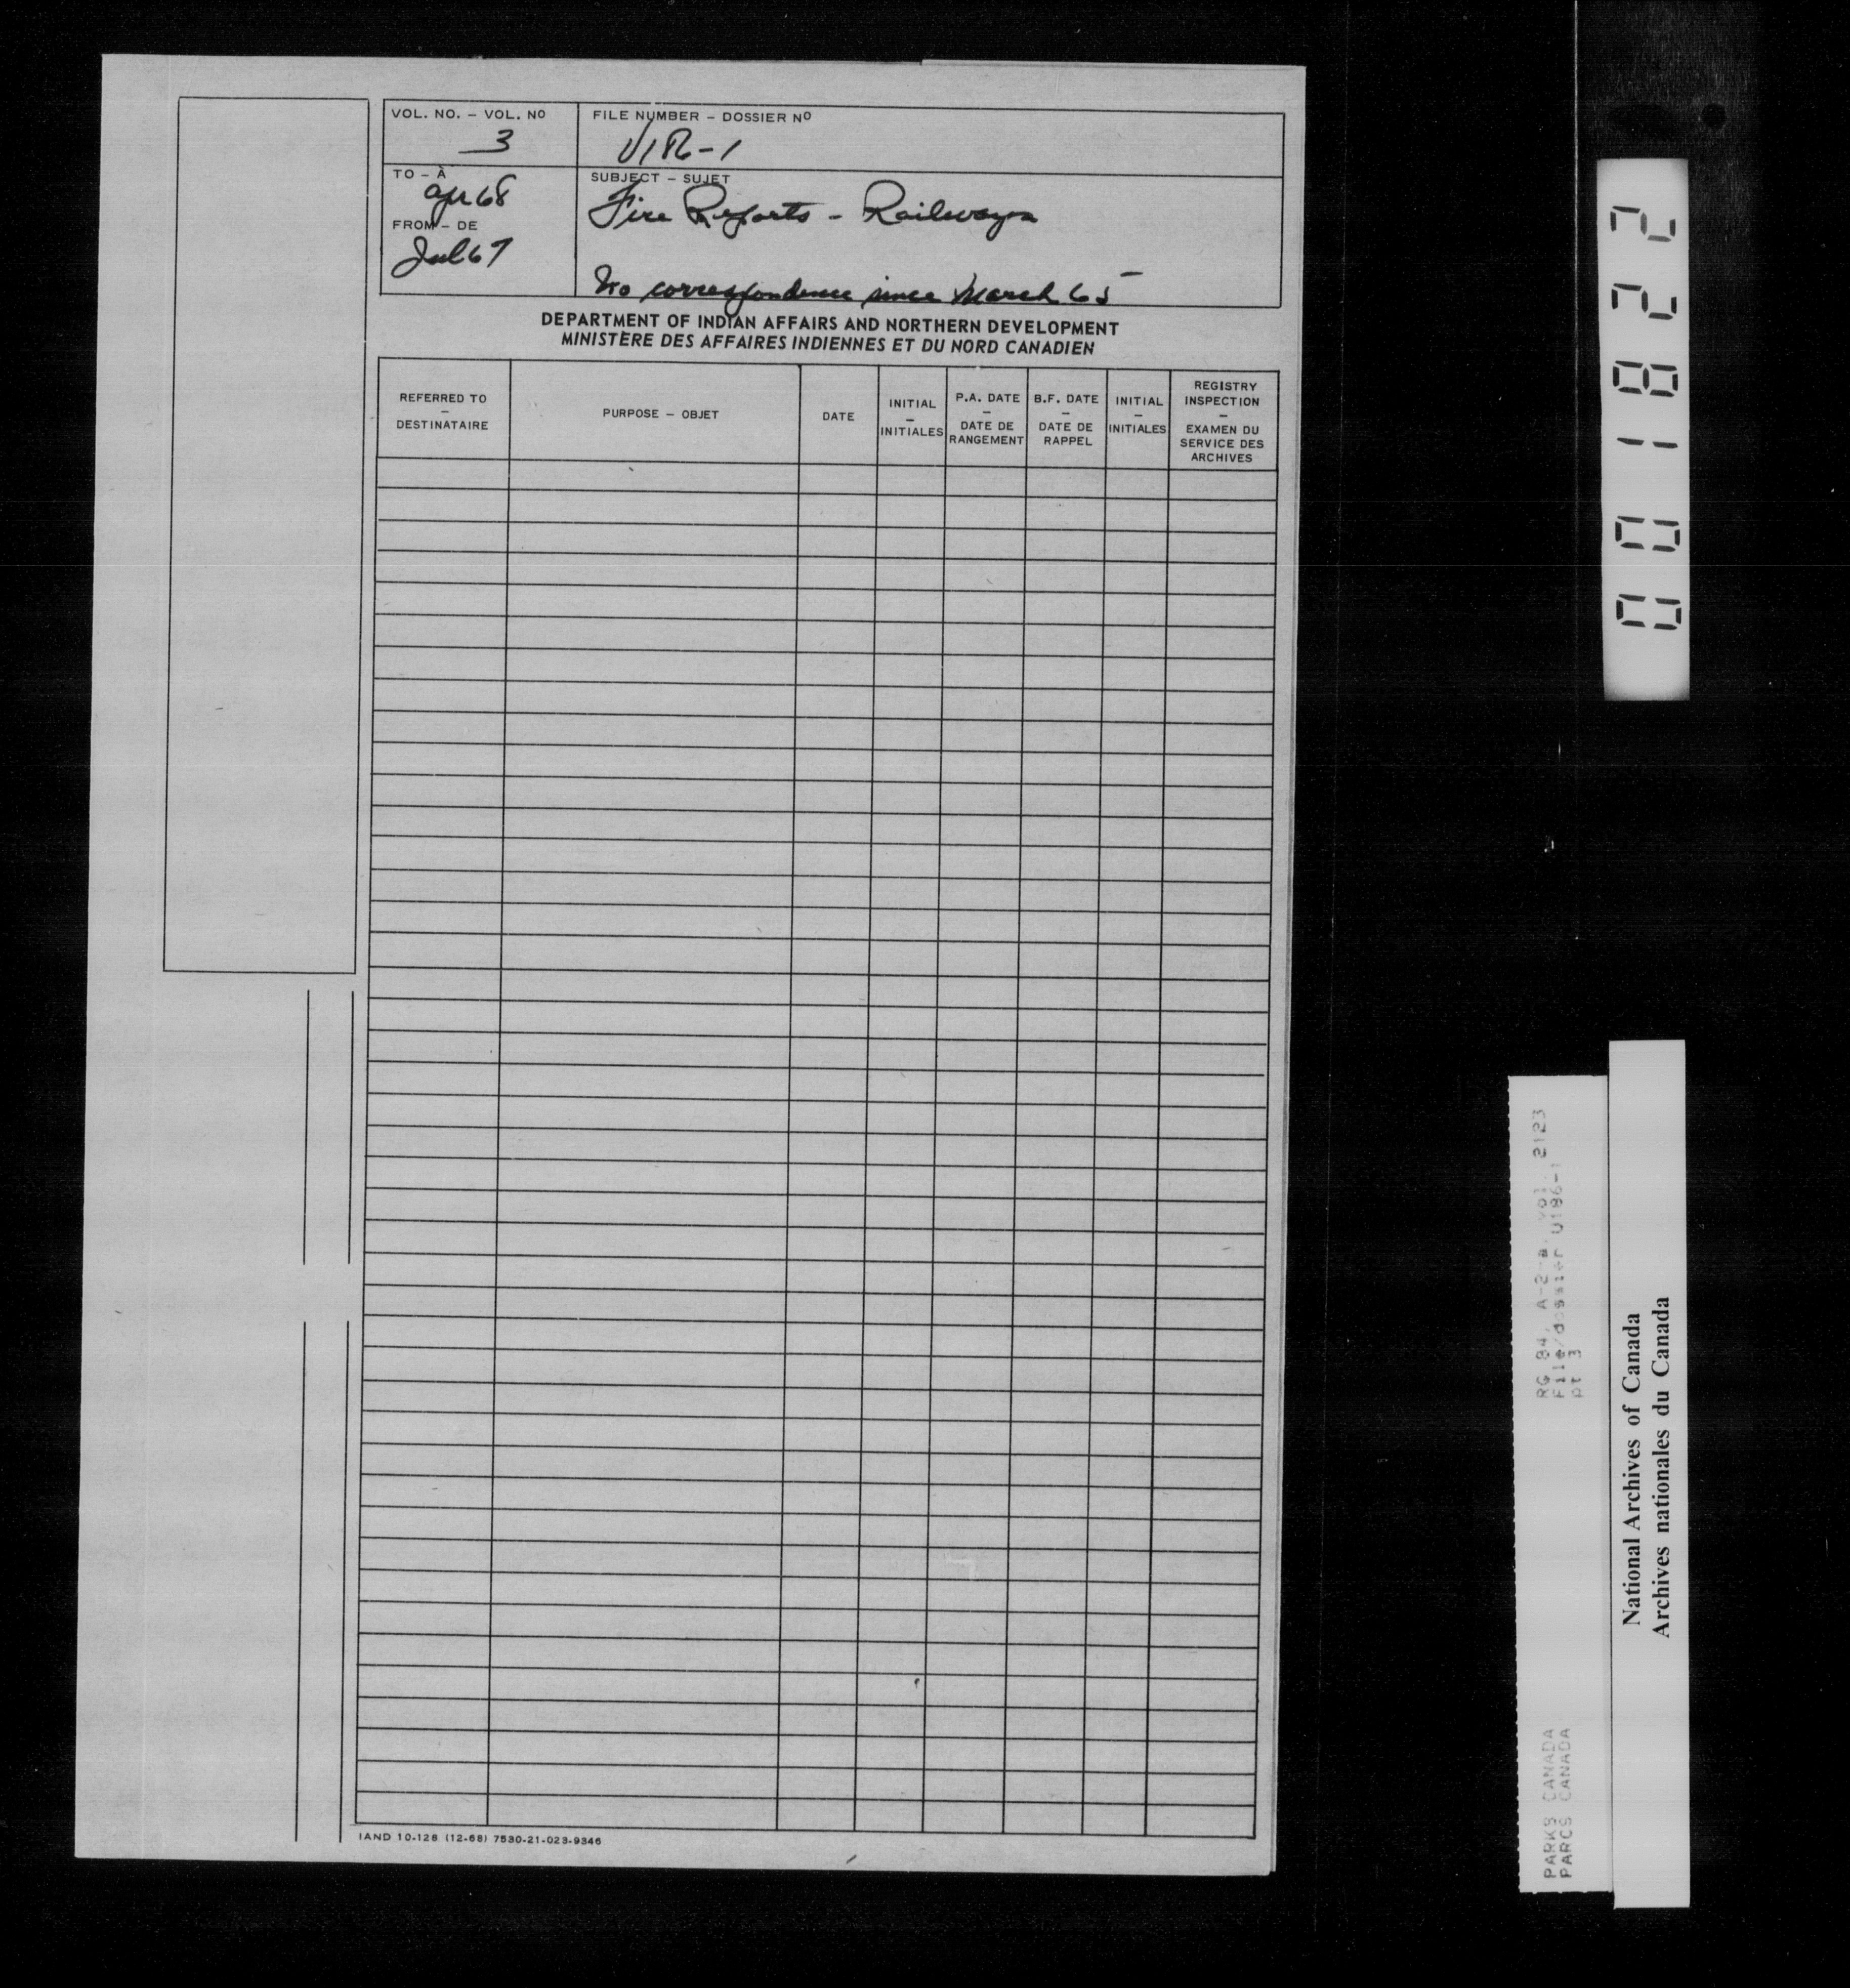 VOL. NO. – VOL. NO
3
FILE NUMBER – DOSSIER NO
TO – À
apr 68
FROM – DE
Jul 67
SUBJECT – SUJET
Fire Reports - Railways
No correspondence since March 65
DEPARTMENT OF INDIAN AFFAIRS AND NORTHERN DEVELOPMENT
MINISTÈRE DES AFFAIRES INDIENNES ET DU NORD CANADIEN
REFERRED TO
–
DESTINATAIRE
PURPOSE – OBJET
DATE
INITIAL
–
INITIALES
P.A. DATE
–
DATE DE
RANGEMENT
B.F. DATE
–
DATE DE
RAPPEL
INITIAL
–
INITIALES
REGISTRY
INSPECTION
–
EXAMEN DU
SERVICE DES
ARCHIVES
IAND 10-128 (12-68) 7530-21-023-9346
001822
RG 84, A-2-a, vol. 2123
File/dossier U186-1
pt 3
PARKS CANADA
PARCS CANADA
National Archives of Canada
Archives nationales du Canada